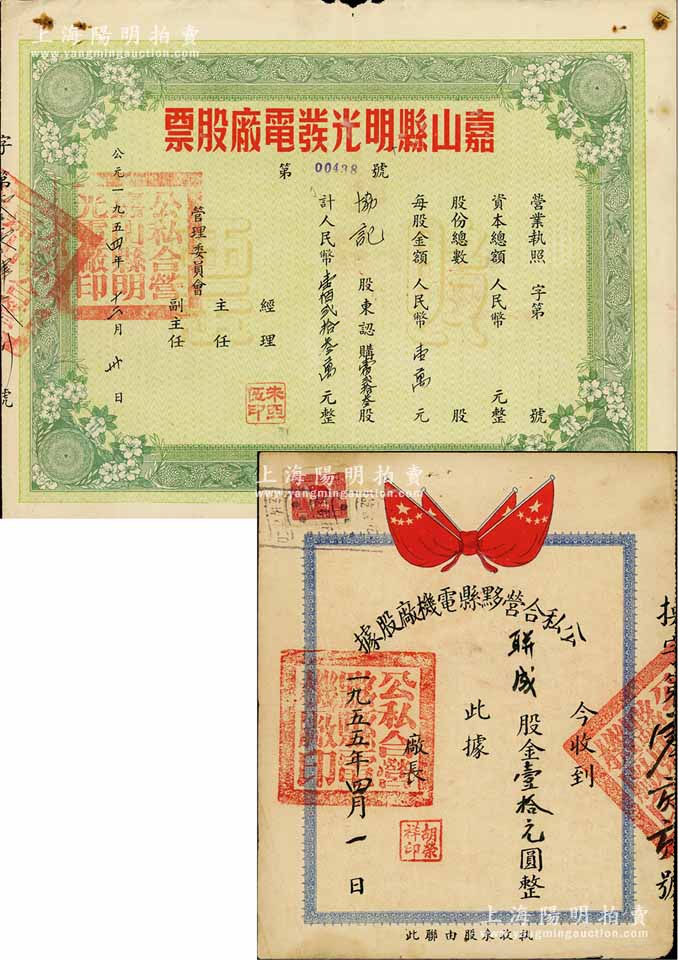 上海陽明拍賣
www.yangmingauction.com
嘉山縣明光發電廠股票
第 00438 號
營業執照 字第 號
資本總額 人民幣 元整
股份總數 股
每股金額 人民幣 壹萬 元
協記 股東認購 壹佰貳拾叁 股
計人民幣 壹佰貳拾叁萬 元整
經理
主任
副主任
管理委員會
公元一九五四年十二月卅日
公私合營嘉山縣明光電廠印
字第
號
上海陽明拍賣
www.yangmingauction.com
公私合營黟縣電機廠股據
今收到
聯成 股金壹拾元圓整
此據
廠長
胡榮祥印
一九五五年四月一日
換字第
號
此聯由股東收執
上海陽明拍賣
www.yangmingauction.com